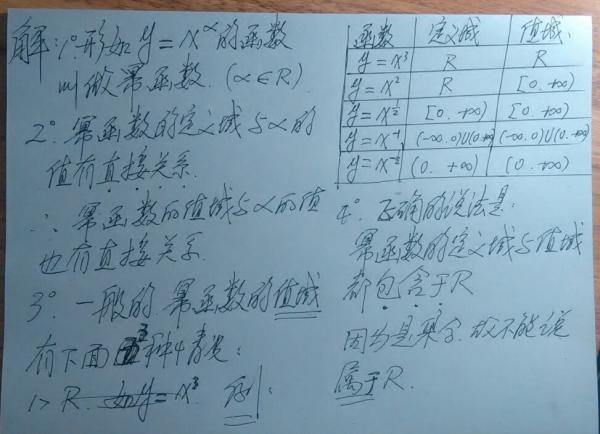 解:1°形如 y=x^α 的函数
叫做幂函数.(α∈R)
2°.幂函数的定义域与α的
值有直接关系.
∴ 幂函数的值域与α的值
也有直接关系.
3°.一般的 幂函数的值域
有下面3种情况:
1> R. 如y=x³
函数 定义域 值域.
y=x³ R R
y=x² R [0.+∞)
y=x^½ [0.+∞) [0.+∞)
y=x⁻¹ (-∞.0)∪(0.+∞) (-∞.0)∪(0.+∞)
(0.+∞) (0.+∞)
4°.正确的说法是:
幂函数的定义域与值域
都包含于R
因为是集合.故不能说
属于R.